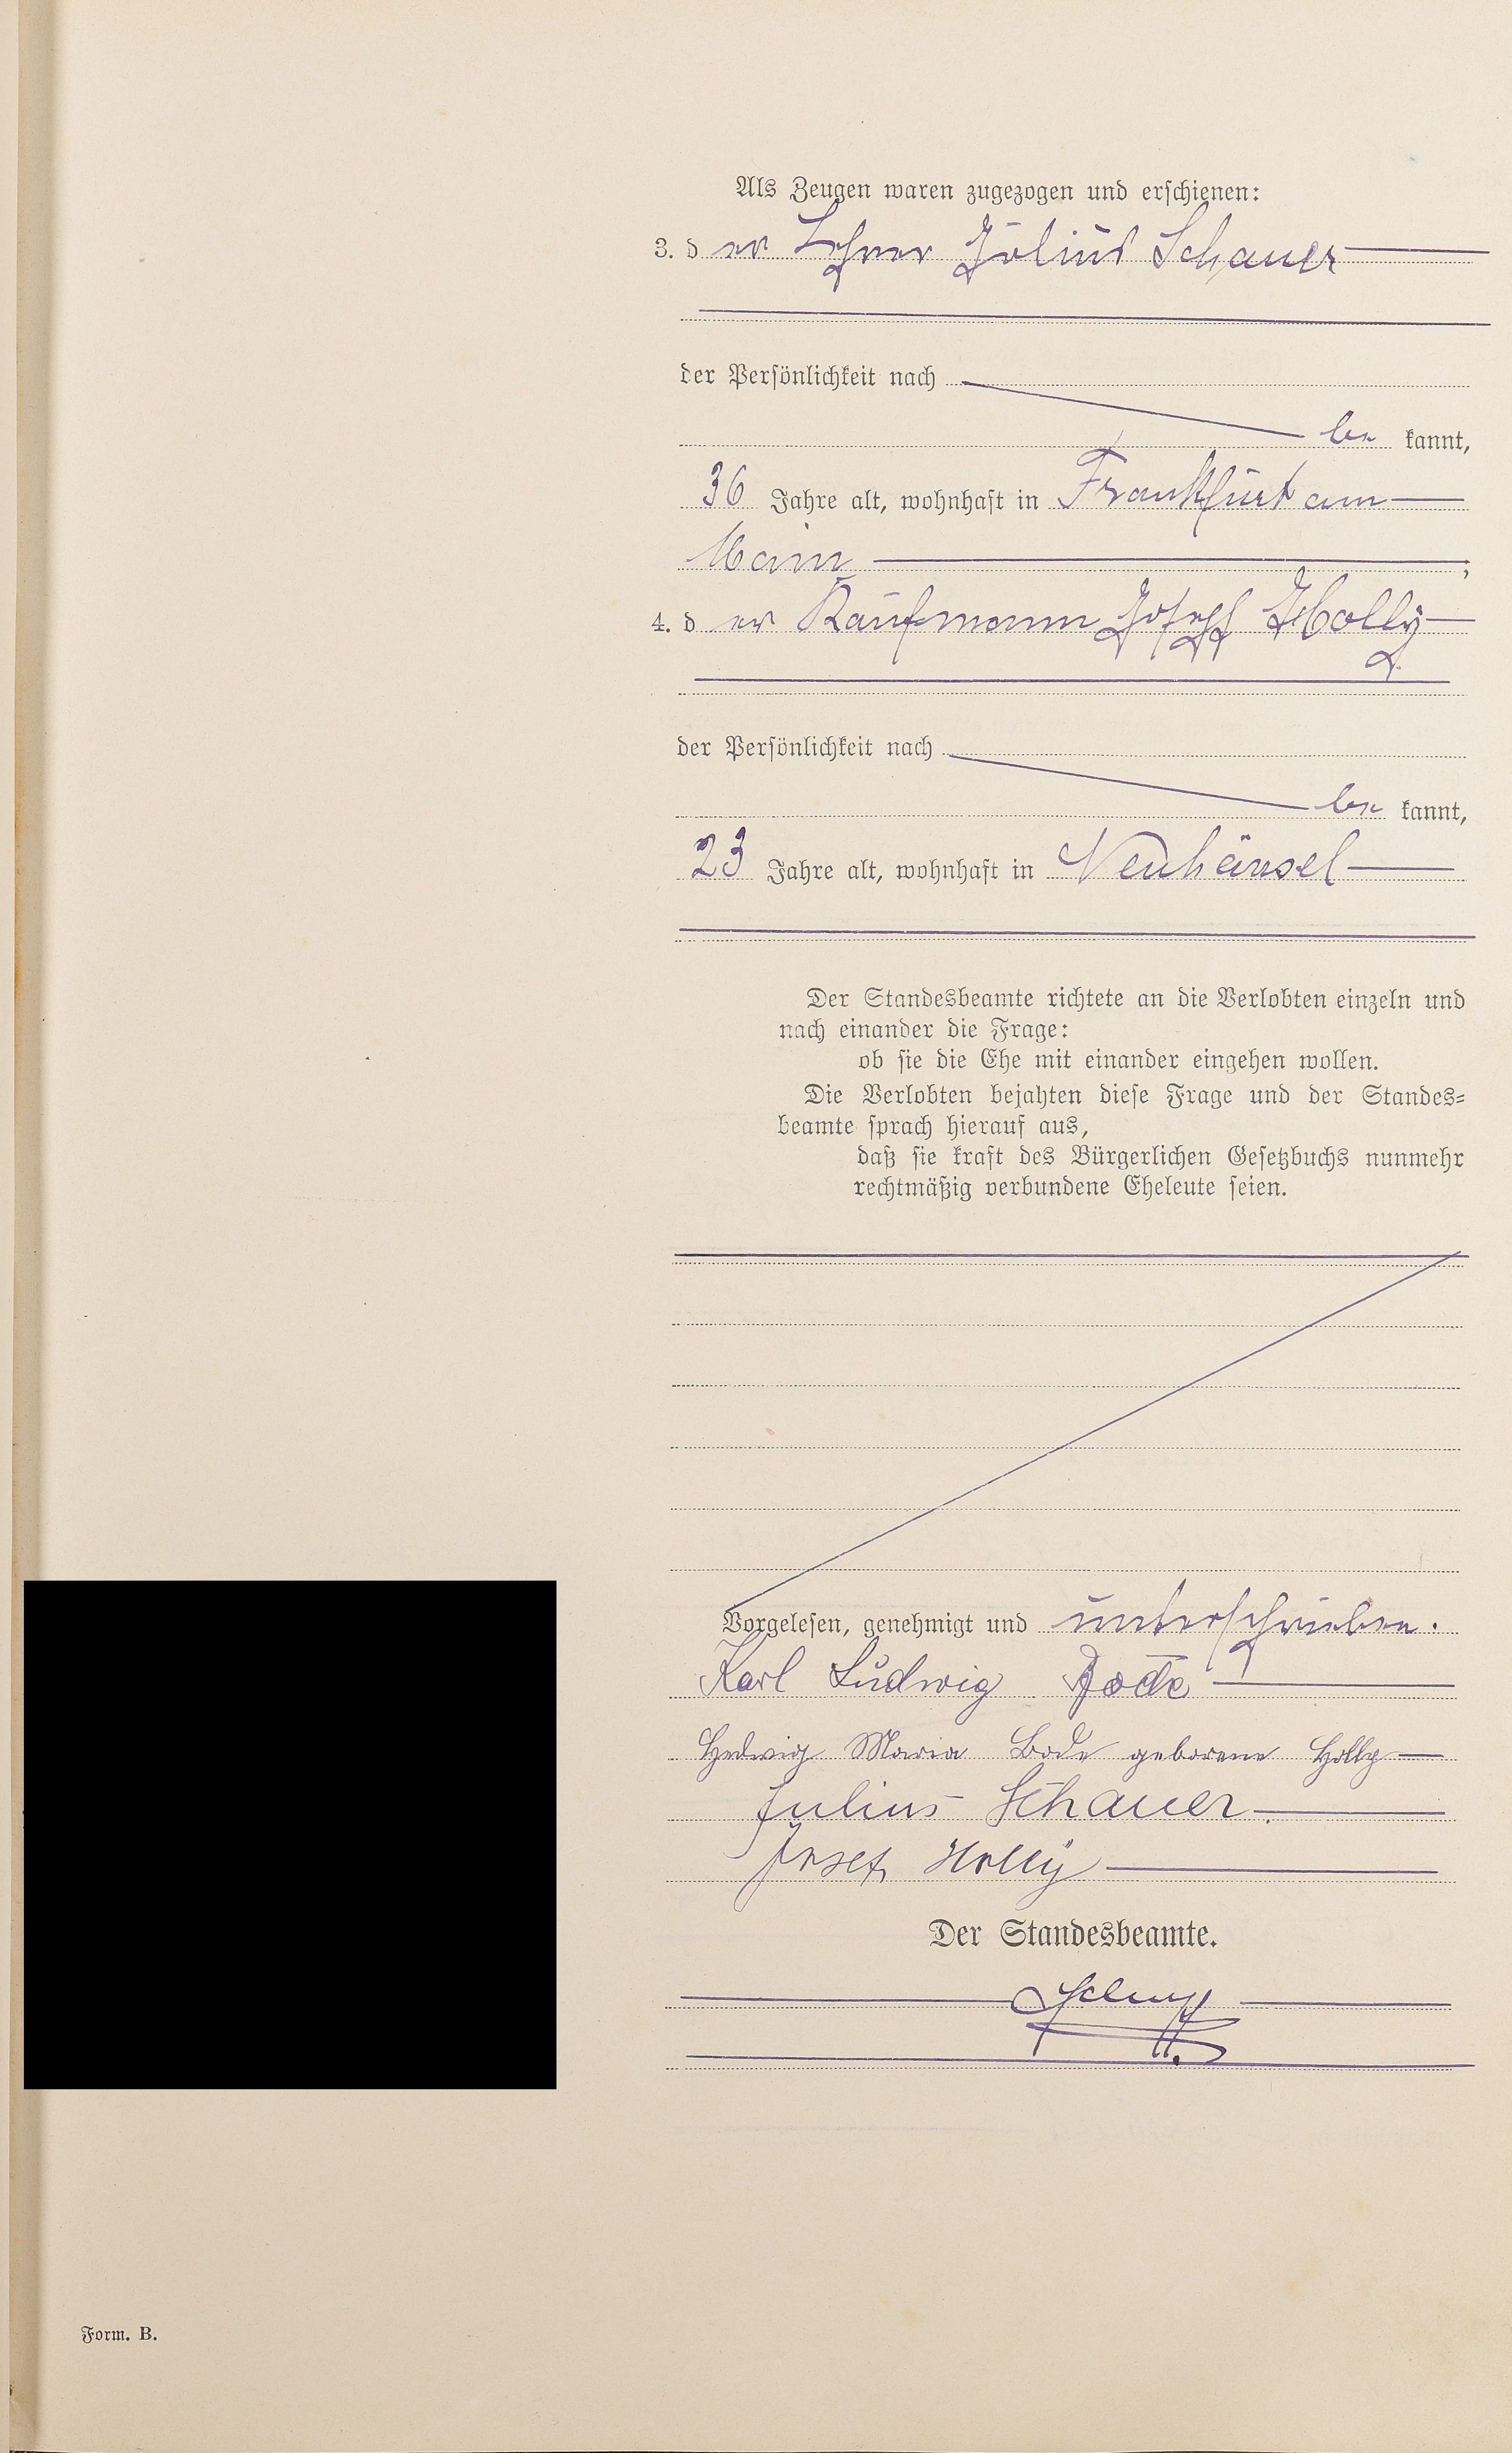 Als Zeugen waren zugezogen und erschienen:
3. der Lehrer Julius Schauer
der Persönlichkeit nach
be kannt,
36 Jahre alt, wohnhaft in Frankfurt am
Main ;
4. der Kaufmann Joseph Holly
der Persönlichkeit nach
be kannt,
23 Jahre alt, wohnhaft in Neuhäusel
Der Standesbeamte richtete an die Verlobten einzeln und
nach einander die Frage:
ob sie die Ehe mit einander eingehen wollen.
Die Verlobten bejahten diese Frage und der Standes-
beamte sprach hierauf aus,
daß sie kraft des Bürgerlichen Gesetzbuchs nunmehr
rechtmäßig verbundene Eheleute seien.
Vorgelesen, genehmigt und unterschrieben.
Karl Ludwig Bode
Hedwig Maria Bode geborene Holly
Julius Schauer
Josef Holly
Der Standesbeamte.
Form. B.